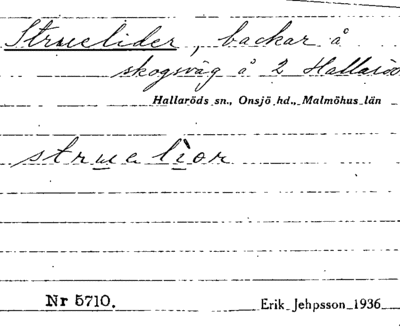 Struelider, backar å
skogsväg å 2 Hallaröd
Hallaröds sn., Onsjö hd., Malmöhus län
strue lior
Nr 5710.
Erik Jehpsson 1936